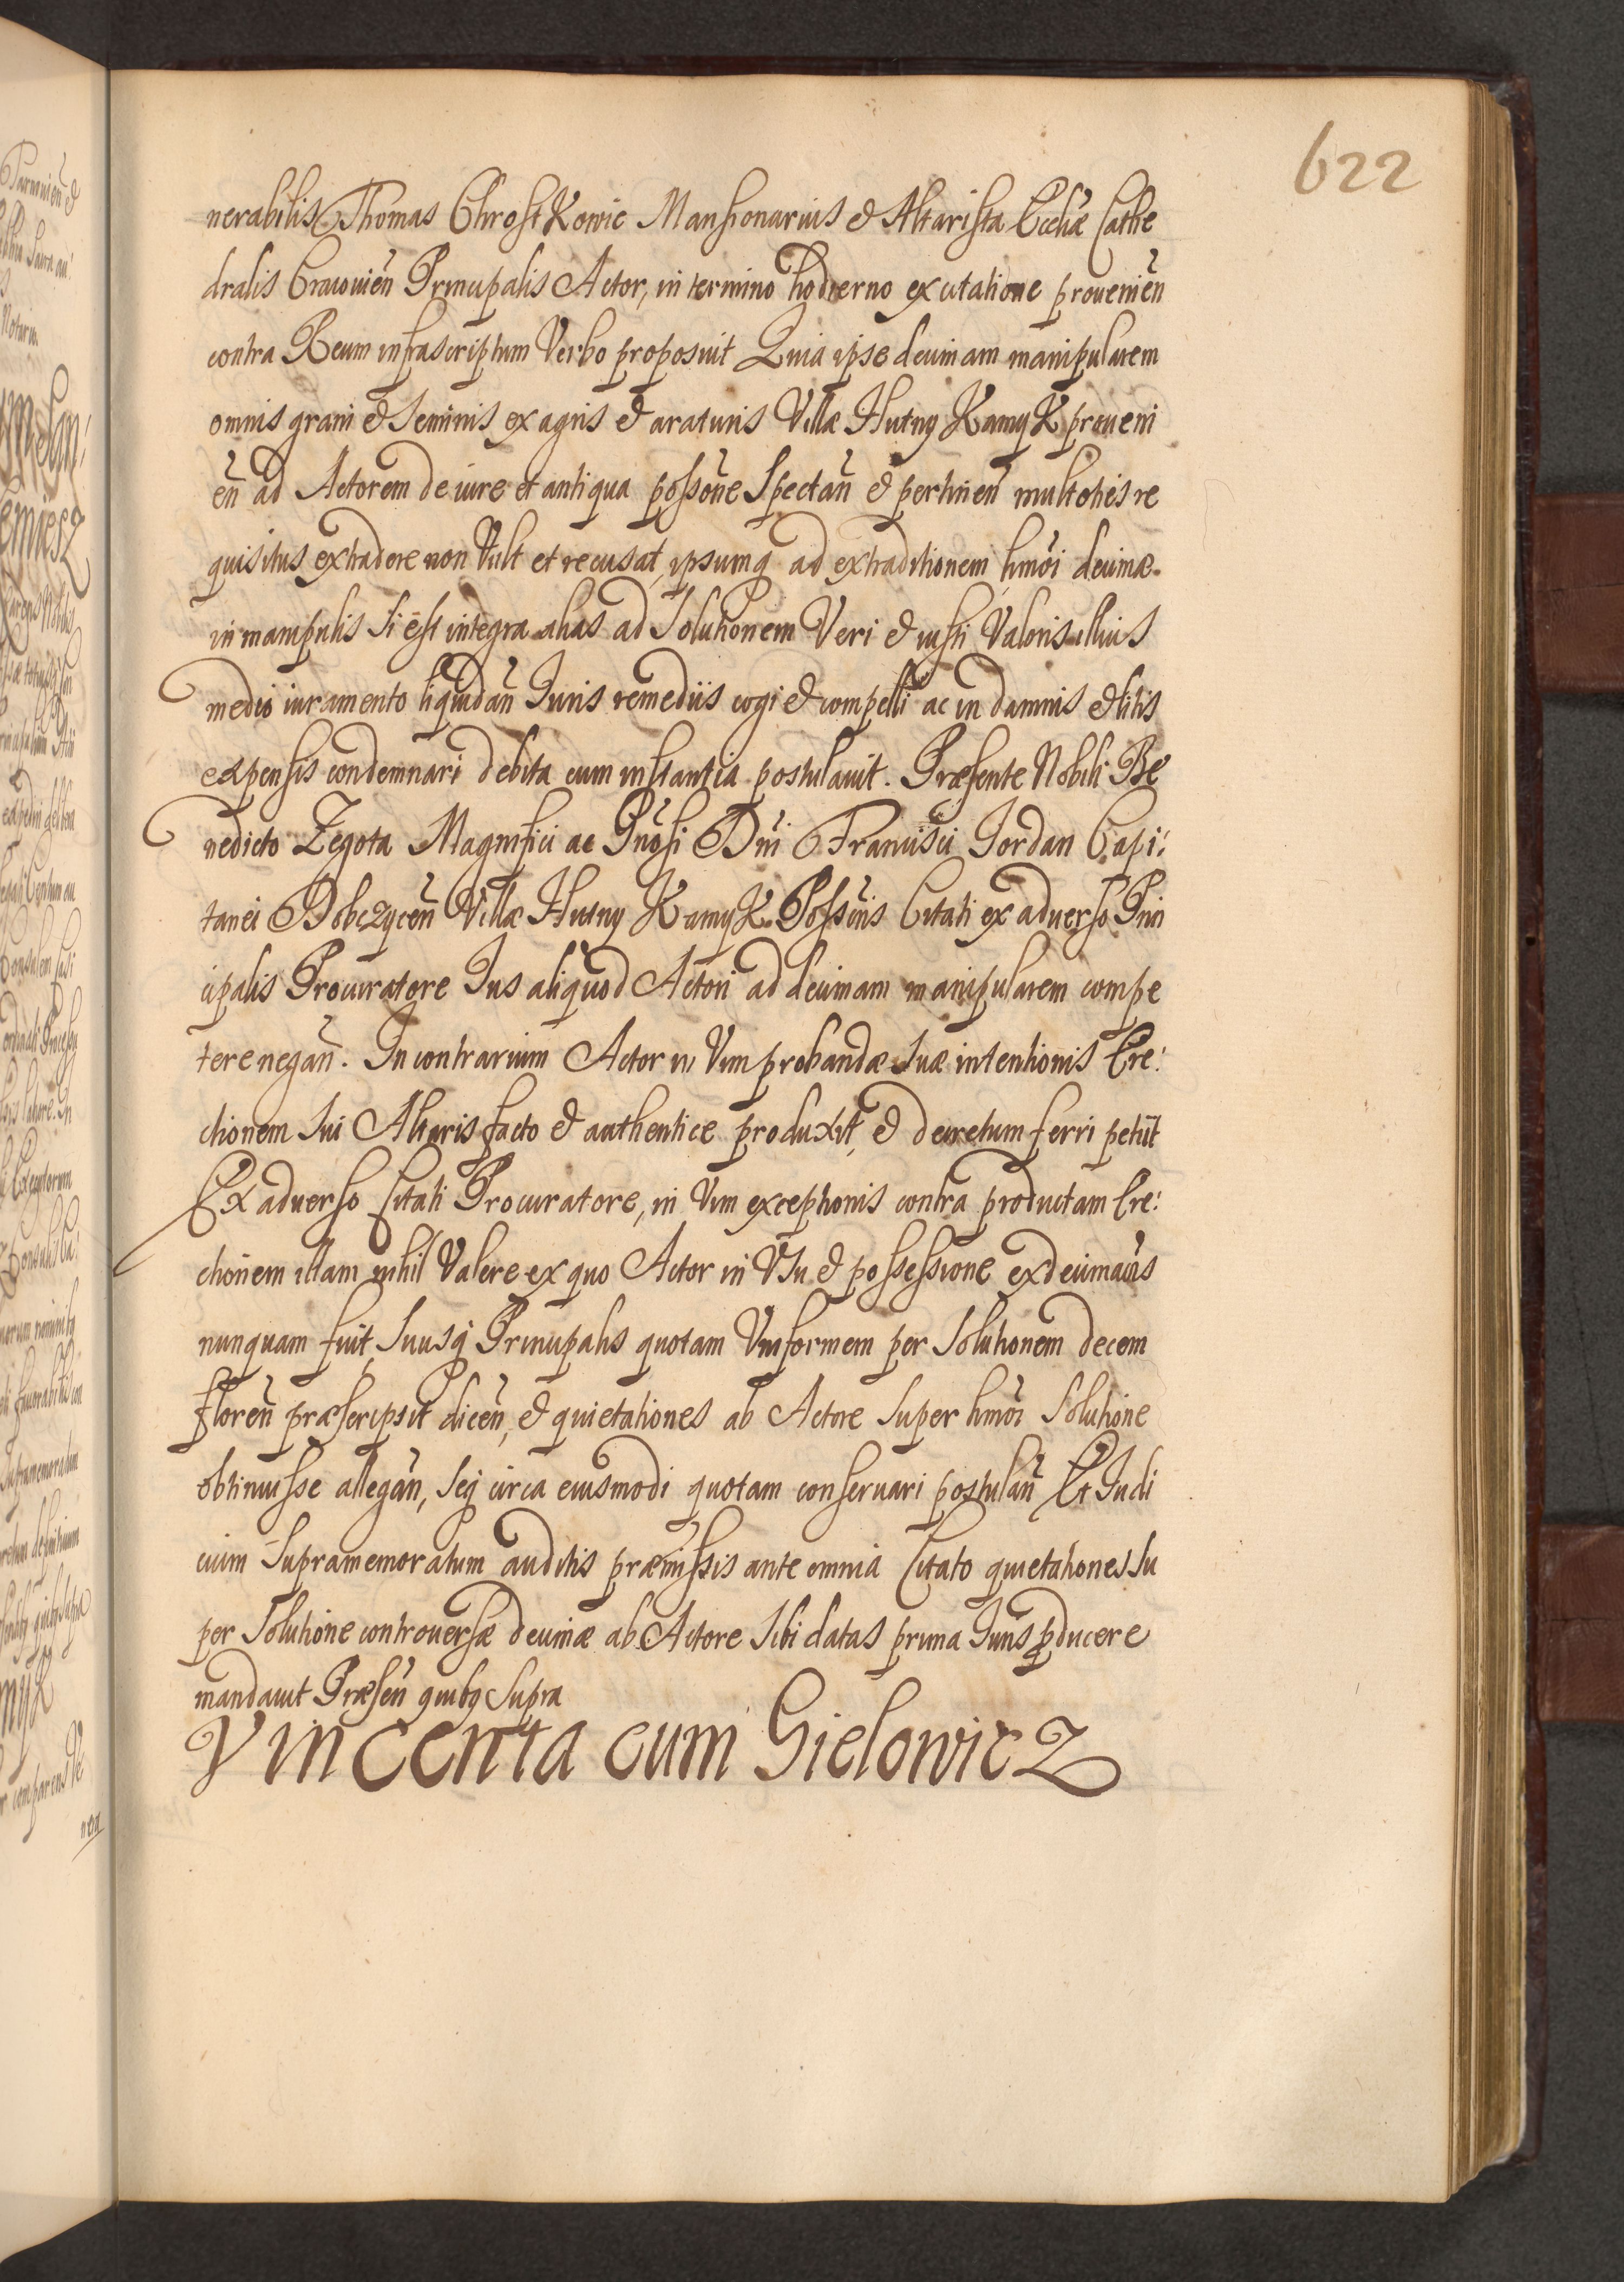 622
nerabilis Thomas ChrostKowic Mansionarius et Altarista Eccliæ Cathe
dralis Cracouien̄ Principalis Actor, in termino hodierno ex citatione prouenien̄
contra Reum infrascriptum Verbo proposuit Quia ipse decimam manipularem
omnis grani et Seminis ex agris et araturis Villæ Hutny KamyK proueni
en̄ ad Actorem de iure et antiqua possōne Spectan̄ et pertinen̄ multoties re
quisitus extradere non Vult et recusat, ipsumq ad extraditionem hmōi decimæ
in manipulis Si est integra alias ad Solutionem Veri et iusti Valoris illius
medio iuramento liquidan̄ Iuris remediis cogi et compelli ac in damnis et litis
expensis condemnari debita cum instantia postulauit. Præsente Nobili Be
nedicto Zegota Magnifici ac Gn̄osi Dn̄i Francisci Jordan Capi:
tanei Dobczycen̄ Villæ Hutny KamyK Possōris Citati ex aduerso Prin
cipalis Procuratore Ius aliquod Actori ad decimam manipularem compe
tere negan̄. In contrarium Actor in Vim probandæ Suæ intentionis Ere:
ctionem Sui Altaris facto et authentice produxit, et decretum ferri petiit
Ex aduerso Citati Procuratore, in Vim exceptionis contra productam Ere:
ctionem illam nihil Valere ex quo Actor in VSu et possessione ex decimaōis
nunquam fuit, Suusq Principalis quotam Vniformem per Solutionem decem
floren̄ præscripsit dicen̄, et quietationes ab Actore Super hmōi Solutione
obtinuisse allegan̄, Seq circa eiusmodi quotam conseruari postulan̄ Et Iudi
cium Supramemoratum auditis præmissis ante omnia Citato quietationes Su
per Solutione controuersæ decimæ ab Actore Sibi datas prima Iuris pducere
mandauit Præsen̄ quibq Supra
Vincenta cum GielowicZ